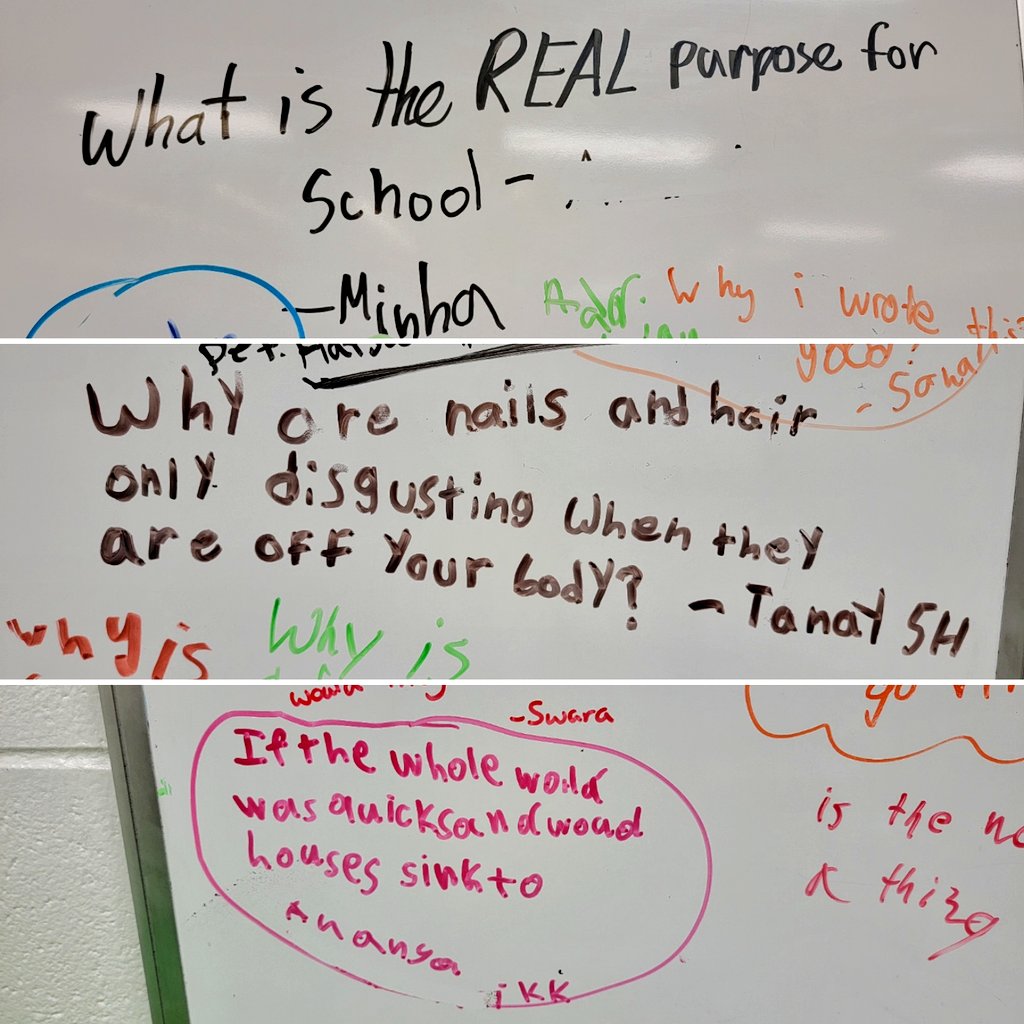 What is the REAL purpose for
School -
- Minha
Adrian
Why i wrote this
good?
- Sanah
Why are nails and hair
only disgusting when they
are off your body? - Tanay SH
why is
Why is
- Swara
If the whole world
was quicksand woud
houses sink to
Ananya
ikk
is the no
a thing